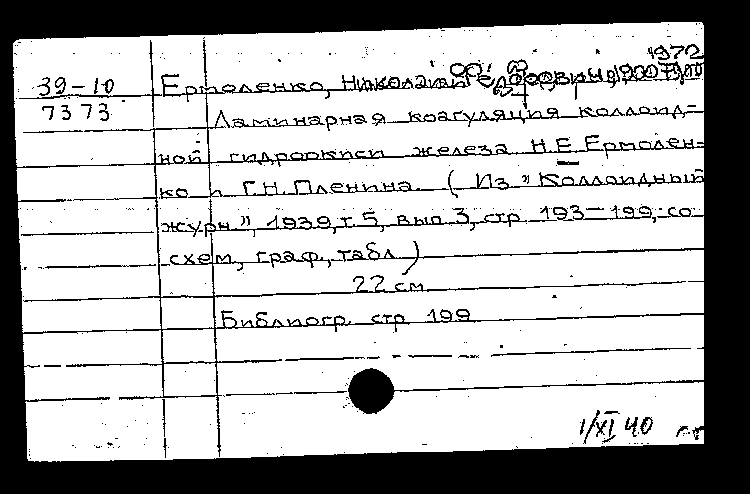 1972
39-10 Ермоленко, Николай Федорович, 1900
7373 Ламинарная коагуляция коллоид-
ной гидроокиси железа Н.Е. Ермолен-
ко и Г.Н. Пленина. (Из "Коллоидный
журн", 1939, т. 5, вып 3, стр 193-199, со
схем, граф., табл)
22 см
Библиогр. стр 199
1/XI 40